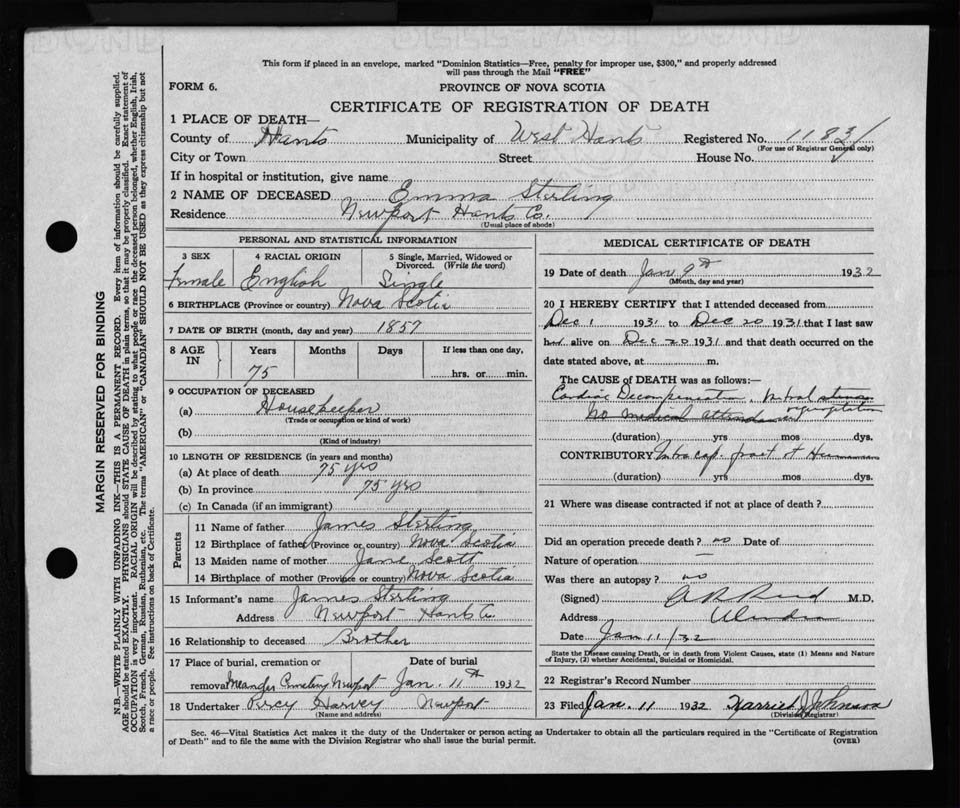 This form if placed in an envelope, marked "Dominion Statistics—Free, penalty for improper use, $300," and properly addressed
will pass through the Mail "FREE"
FORM 6.
PROVINCE OF NOVA SCOTIA
CERTIFICATE OF REGISTRATION OF DEATH
1 PLACE OF DEATH—
County of Hants Municipality of West Hants Registered No. 1183
(For use of Registrar General only)
City or Town Street House No.
If in hospital or institution, give name
2 NAME OF DECEASED Emma Sterling
Residence Newport Hants Co.
(Usual place of abode)
PERSONAL AND STATISTICAL INFORMATION
3 SEX 4 RACIAL ORIGIN 5 Single, Married, Widowed or
Divorced. (Write the word)
Female English Single
6 BIRTHPLACE (Province or country) Nova Scotia
7 DATE OF BIRTH (month, day and year) 1857
8 AGE IN Years Months Days If less than one day,
75 hrs. or min.
9 OCCUPATION OF DECEASED
(a) Housekeeper
(Trade or occupation or kind of work)
(b)
(Kind of industry)
10 LENGTH OF RESIDENCE (in years and months)
(a) At place of death 75 yrs
(b) In province 75 yrs
(c) In Canada (if an immigrant)
Parents
11 Name of father James Sterling
12 Birthplace of father (Province or country) Nova Scotia
13 Maiden name of mother Jane Scott
14 Birthplace of mother (Province or country) Nova Scotia
15 Informant's name James Sterling
Address Newport Hants Co
16 Relationship to deceased Brother
17 Place of burial, cremation or Date of burial
removal Meander Cemetery Newport Jan. 11th 1932
18 Undertaker Percy Harvey Newport
(Name and address)
MEDICAL CERTIFICATE OF DEATH
19 Date of death Jan 9th 1932
(Month, day and year)
20 I HEREBY CERTIFY that I attended deceased from
Dec 1 1931 to Dec 20 1931 that I last saw
her alive on Dec 20 1931 and that death occurred on the
date stated above, at m.
The CAUSE OF DEATH was as follows:—
Cardiac Decompensation, Mitral stenosis
No medical attendance regurgitation
(duration) yrs mos dys.
CONTRIBUTORY Intracap. fract of
(duration) yrs. mos. dys.
21 Where was disease contracted if not at place of death?
Did an operation precede death? no Date of
Nature of operation —
Was there an autopsy? no
(Signed) M.D.
Address
Date Jan 11/32
State the Disease causing Death, or in death from Violent Causes, state (1) Means and Nature
of Injury, (2) whether Accidental, Suicidal or Homicidal.
22 Registrar's Record Number
23 Filed Jan. 11 1932 Harriet J Johnson
(Division Registrar)
Sec. 46—Vital Statistics Act makes it the duty of the Undertaker or person acting as Undertaker to obtain all the particulars required in the "Certificate of Registration
of Death" and to file the same with the Division Registrar who shall issue the burial permit.
(OVER)
MARGIN RESERVED FOR BINDING
N.B.—WRITE PLAINLY WITH UNFADING INK—THIS IS A PERMANENT RECORD. Every item of information should be carefully supplied.
AGE should be stated EXACTLY. PHYSICIANS should STATE CAUSE OF DEATH in plain terms, so that it may be properly classified. Exact statement of
OCCUPATION is very important. RACIAL ORIGIN will be described by stating to what people or race the deceased person belonged, whether English, Irish,
Scotch, French, German, Russian, Ruthenian, etc. The terms "AMERICAN" or "CANADIAN" SHOULD NOT BE USED as they express citizenship but not
a race or people. See instructions on back of Certificate.